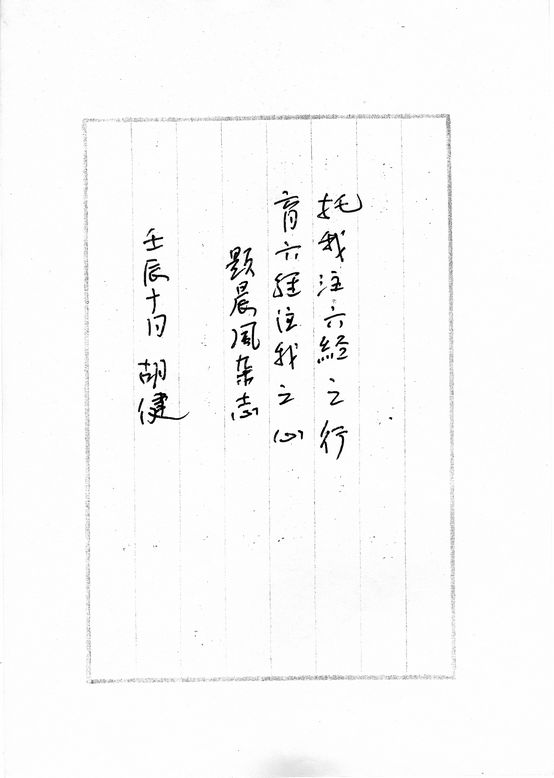 托我注六经之行
育六经注我之心
题晨风杂志
壬辰十月 胡健